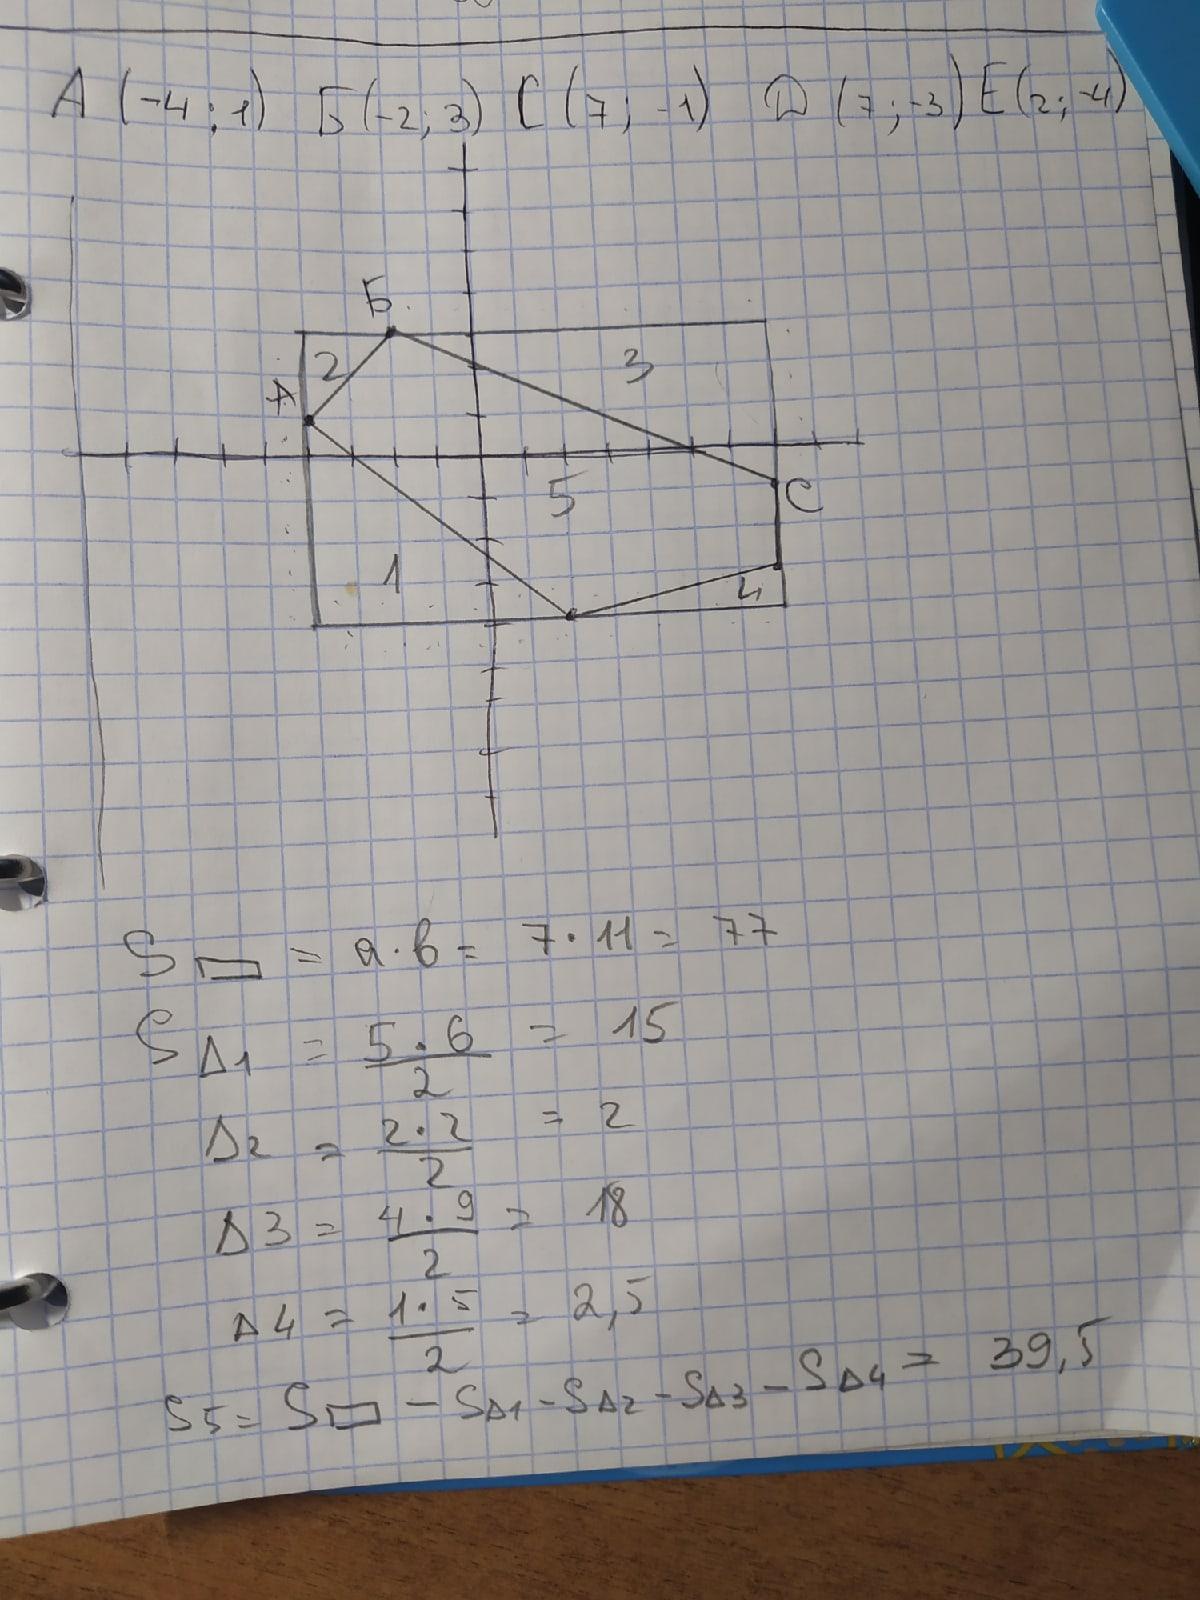 A (-4; 1) Б(-2; 3) C (7; -1) D (7; -3) E(2; -4)
Б
2
3
A
5
C
1
4
S▭ = a·b = 7·11 = 77
S△1 = 5·6/2 = 15
△2 = 2·2/2 = 2
△3 = 4·9/2 = 18
△4 = 1·5/2 = 2,5
S5 = S▭ - S△1 - S△2 - S△3 - S△4 = 39,5